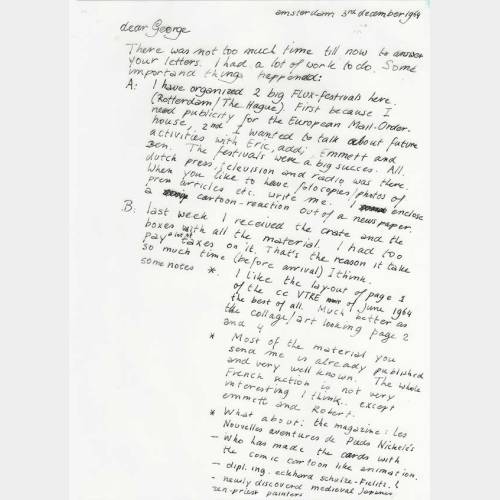 amsterdam 3rd december 1964
dear George
There was not too much time till now to answer
your letters. I had a lot of work to do. Some
importand things happened:
A: I have organized 2 big FLUX-festivals here.
(Rotterdam/The Hague) First because I
need publicity for the European Mail-Order-
house, 2nd. I wanted to talk about future
activities with Eric, addi, Emmett and
Ben. The festivals were a big succes. All
dutch press, television and radio was there.
When you like to have fotocopies/photos of
press articles etc. write me. I enclose
a cartoon-reaction out of a newspaper.
B: last week I received the crate and the
boxes with all the material. I had too
pay taxes on it. That's the reason it take
so much time (before arrival) I think.
some notes * I like the lay-out of page 1
of the cc VTRE of June 1964
the best of all. Much better as
the collage/art looking page 2
and 4
* Most of the material you
send me is already published
and very well known. The whole
French section is not very
interesting I think.. except
emmett and Robert.
* What about: the magazine: Les
Nouvelles aventures de Pieds Nickelés
- Who has made the cards with
the comic cartoon like animation.
- dipl. ing. eckhard schulze-Fielitz
- newly discovered medieval
zen-priest painters